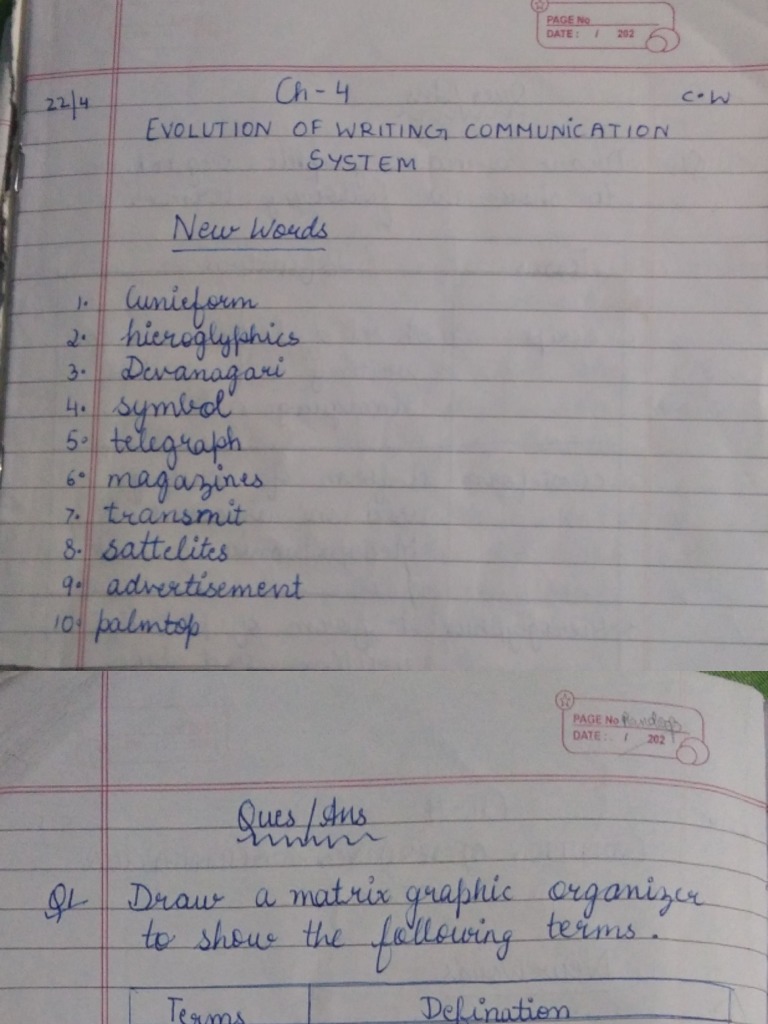 PAGE No
DATE: / 202
22/4 Ch-4 C.W
EVOLUTION OF WRITING COMMUNICATION
SYSTEM
New Words
1. Cunieform
2. hieroglyphics
3. Devanagari
4. symbol
5. telegraph
6. magazines
7. transmit
8. sattelites
9. advertisement
10. palmtop
PAGE No
DATE: / 202
Ques/Ans
Q1 Draw a matrix graphic organizer
to show the following terms.
Terms Defination